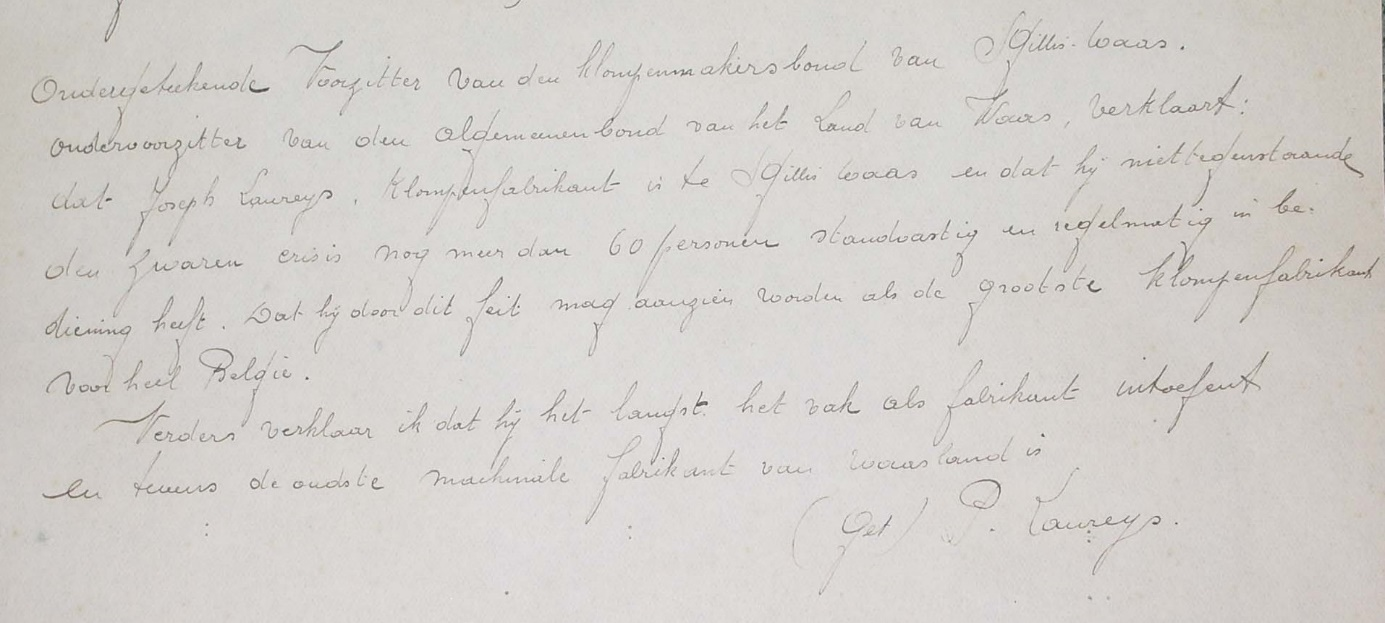 Ondergeteekende Voorzitter van den klompenmakersbond van St Gillis-Waas.
ondervoorzitter van den algemeenenbond van het Land van Waas, verklaart:
dat Joseph Laureys, Klompenfabrikant is te St Gillis Waas en dat hij niettegenstaande
den zwaren crisis nog meer dan 60 personen standvastig en regelmatig in be-
diening heeft. Dat hij door dit feit mag aanzien worden als de grootste klompenfabrikant
voor heel België.
Verders verklaar ik dat hij het langst het vak als fabrikant uitoefent
en tevens de oudste machinale fabrikant van Waasland is
(Get) P. Laureys.